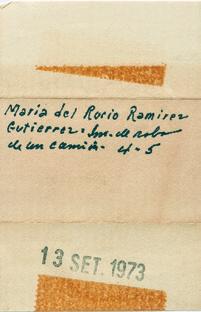 Maria del Rocio Ramirez
Gutierrez - Inv. de robo
de un camión - 4-5
13 SET. 1973